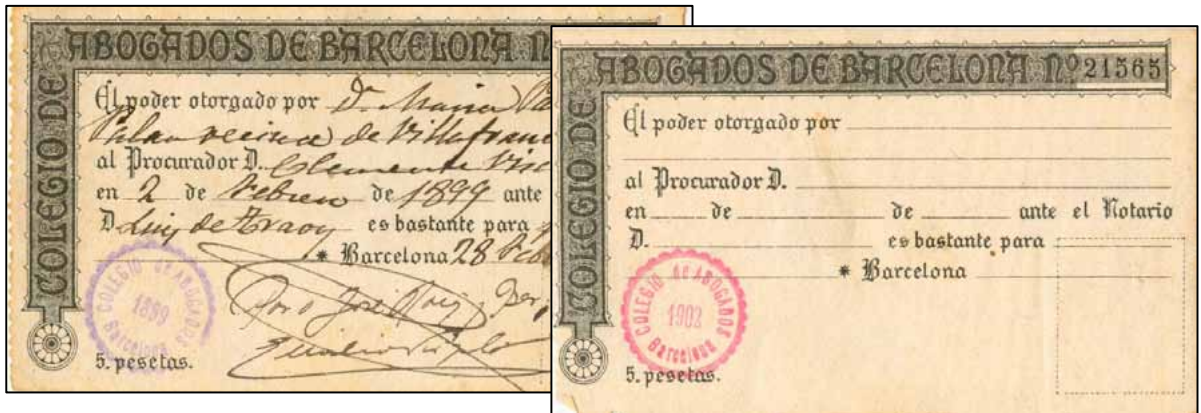 COLEGIO DE ABOGADOS DE BARCELONA N
El poder otorgado por Dª Maria
Palau vecina de Villafranc
al Procurador D. Clemente
en 2 de Febrero de 1899 ante
D. Luis de es bastante para
* Barcelona 28
COLEGIO DE ABOGADOS
1899
Barcelona
Jose
5. pesetas.
COLEGIO DE ABOGADOS DE BARCELONA Nº 21565
El poder otorgado por
al Procurador D.
en de de ante el Notario
D. es bastante para
* Barcelona
COLEGIO DE ABOGADOS
1902
Barcelona
5. pesetas.